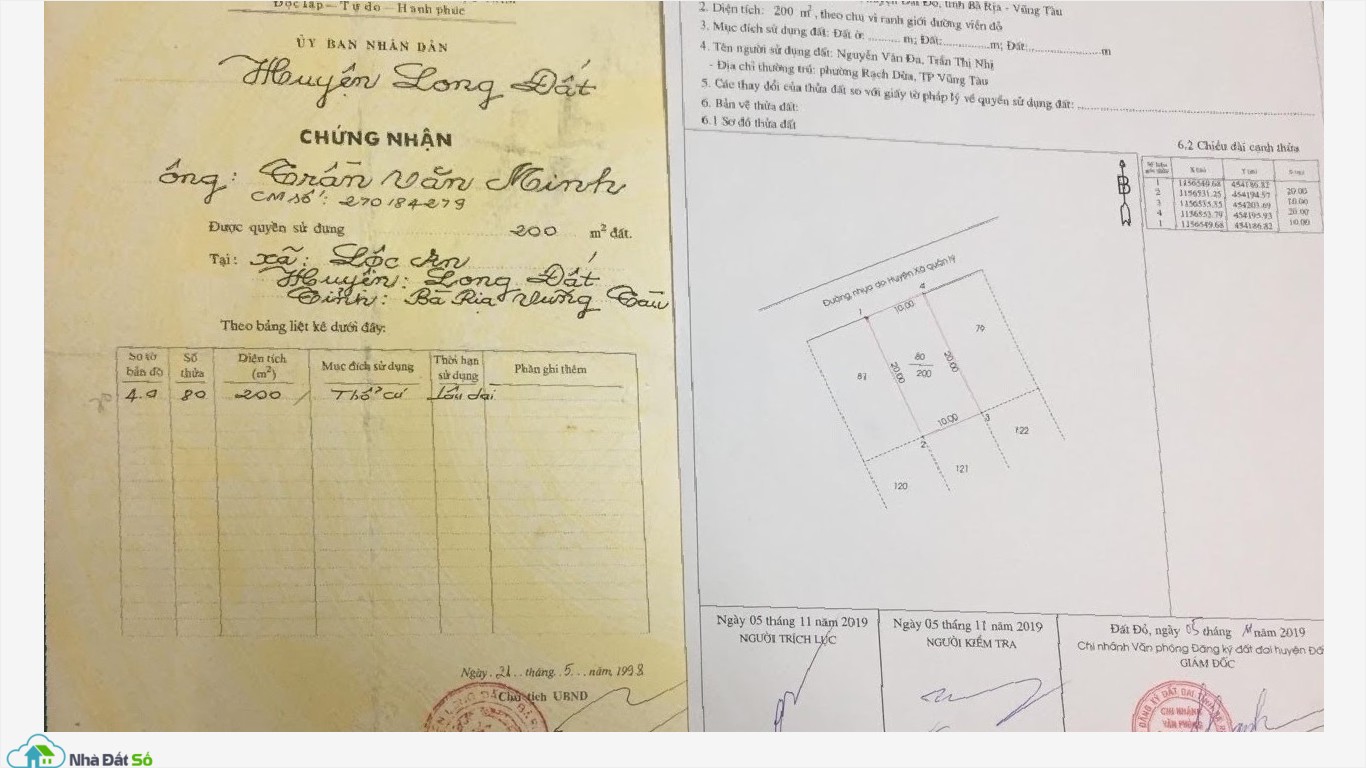 Độc lập – Tự do – Hạnh phúc
ỦY BAN NHÂN DÂN
Huyện Long Đất
CHỨNG NHẬN
Ông: Trần Văn Minh
CM số: 270184279
Được quyền sử dụng 200 m² đất.
Tại: Xã: Lộc An
Huyện: Long Đất
Tỉnh: Bà Rịa Vũng Tàu
Theo bảng liệt kê dưới đây:
Số tờ bản đồ Số thửa Diện tích (m²) Mục đích sử dụng Thời hạn sử dụng Phần ghi thêm
4.0 80 200 Thổ cư Lâu dài
Ngày 21 tháng 5 năm 1998
Chủ tịch UBND
Đất Đỏ, tỉnh Bà Rịa - Vũng Tàu
2. Diện tích: 200 m², theo chu vi ranh giới đường viền đỏ
3. Mục đích sử dụng đất: Đất ở: .......... m; Đất:..............m; Đất:......................m
4. Tên người sử dụng đất: Nguyễn Văn Đa, Trần Thị Nhị
- Địa chỉ thường trú: phường Rạch Dừa, TP Vũng Tàu
5. Các thay đổi của thửa đất so với giấy tờ pháp lý về quyền sử dụng đất: ..............................
6. Bản vẽ thửa đất:
6.1 Sơ đồ thửa đất
6.2 Chiều dài cạnh thửa
X (m) Y (m) S (m)
1 1156549.68 454186.82
20.00
2 1156531.25 454194.57
10.00
3 1156535.35 454203.69
20.00
4 1156553.79 454195.93
10.00
1 1156549.68 454186.82
B
Đường nhựa do Huyện Xã quản lý
1
10.00
4
81
20.00
80
200
20.00
79
2
10.00
3
120
121
122
Ngày 05 tháng 11 năm 2019
NGƯỜI TRÍCH LỤC
Ngày 05 tháng 11 năm 2019
NGƯỜI KIỂM TRA
Đất Đỏ, ngày 05 tháng 11 năm 2019
Chi nhánh Văn phòng Đăng ký đất đai huyện Đấ
GIÁM ĐỐC
ĐĂNG KÝ ĐẤT ĐAI
CHI NHÁNH
VĂN PHÒNG
Nhà Đất Số